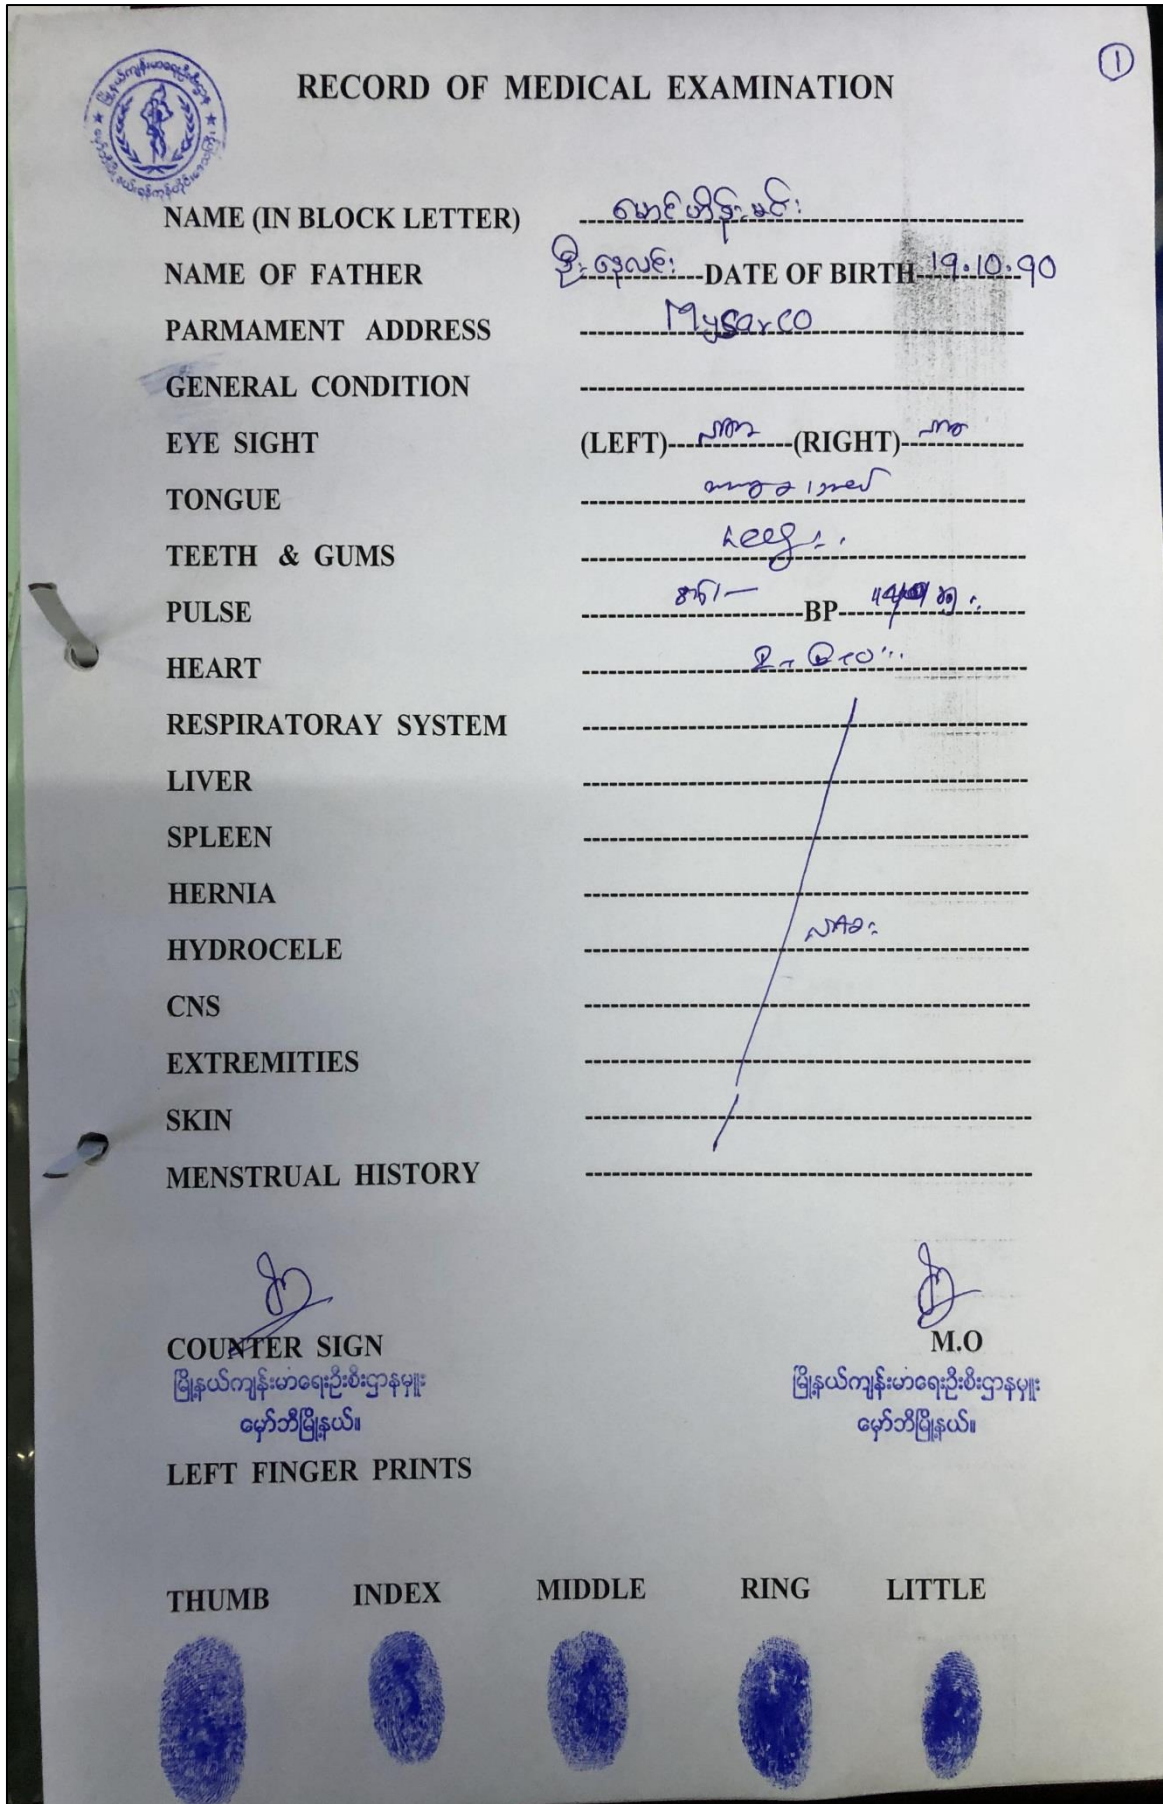 ①
RECORD OF MEDICAL EXAMINATION
NAME (IN BLOCK LETTER) မောင်ဟိန်းမင်း
NAME OF FATHER ဦးနေလင်း DATE OF BIRTH 19.10.90
PARMAMENT ADDRESS
GENERAL CONDITION
EYE SIGHT (LEFT) (RIGHT)
TONGUE
TEETH & GUMS
PULSE BP
HEART
RESPIRATORAY SYSTEM
LIVER
SPLEEN
HERNIA
HYDROCELE
CNS
EXTREMITIES
SKIN
MENSTRUAL HISTORY
COUNTER SIGN M.O
မြို့နယ်ကျန်းမာရေးဦးစီးဌာနမှူး မြို့နယ်ကျန်းမာရေးဦးစီးဌာနမှူး
မှော်ဘီမြို့နယ်။ မှော်ဘီမြို့နယ်။
LEFT FINGER PRINTS
THUMB INDEX MIDDLE RING LITTLE